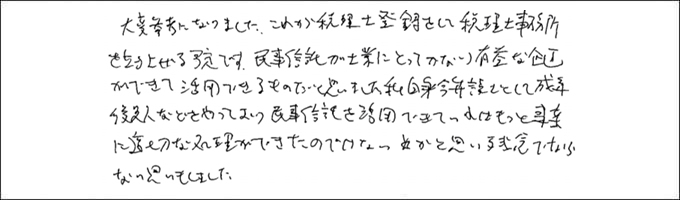 大変参考になりました。これから税理士登録をして税理士事務所
を立上げる予定です。民事信託が士業にとってかなり有益な企画
ができて活用できるものだと思いました。私自身今弁護士として成年
後見人などをやっており民事信託を活用できていればもっと事案
に適切な処理ができたのではないかと思いる残念でならない
ない思いもしました